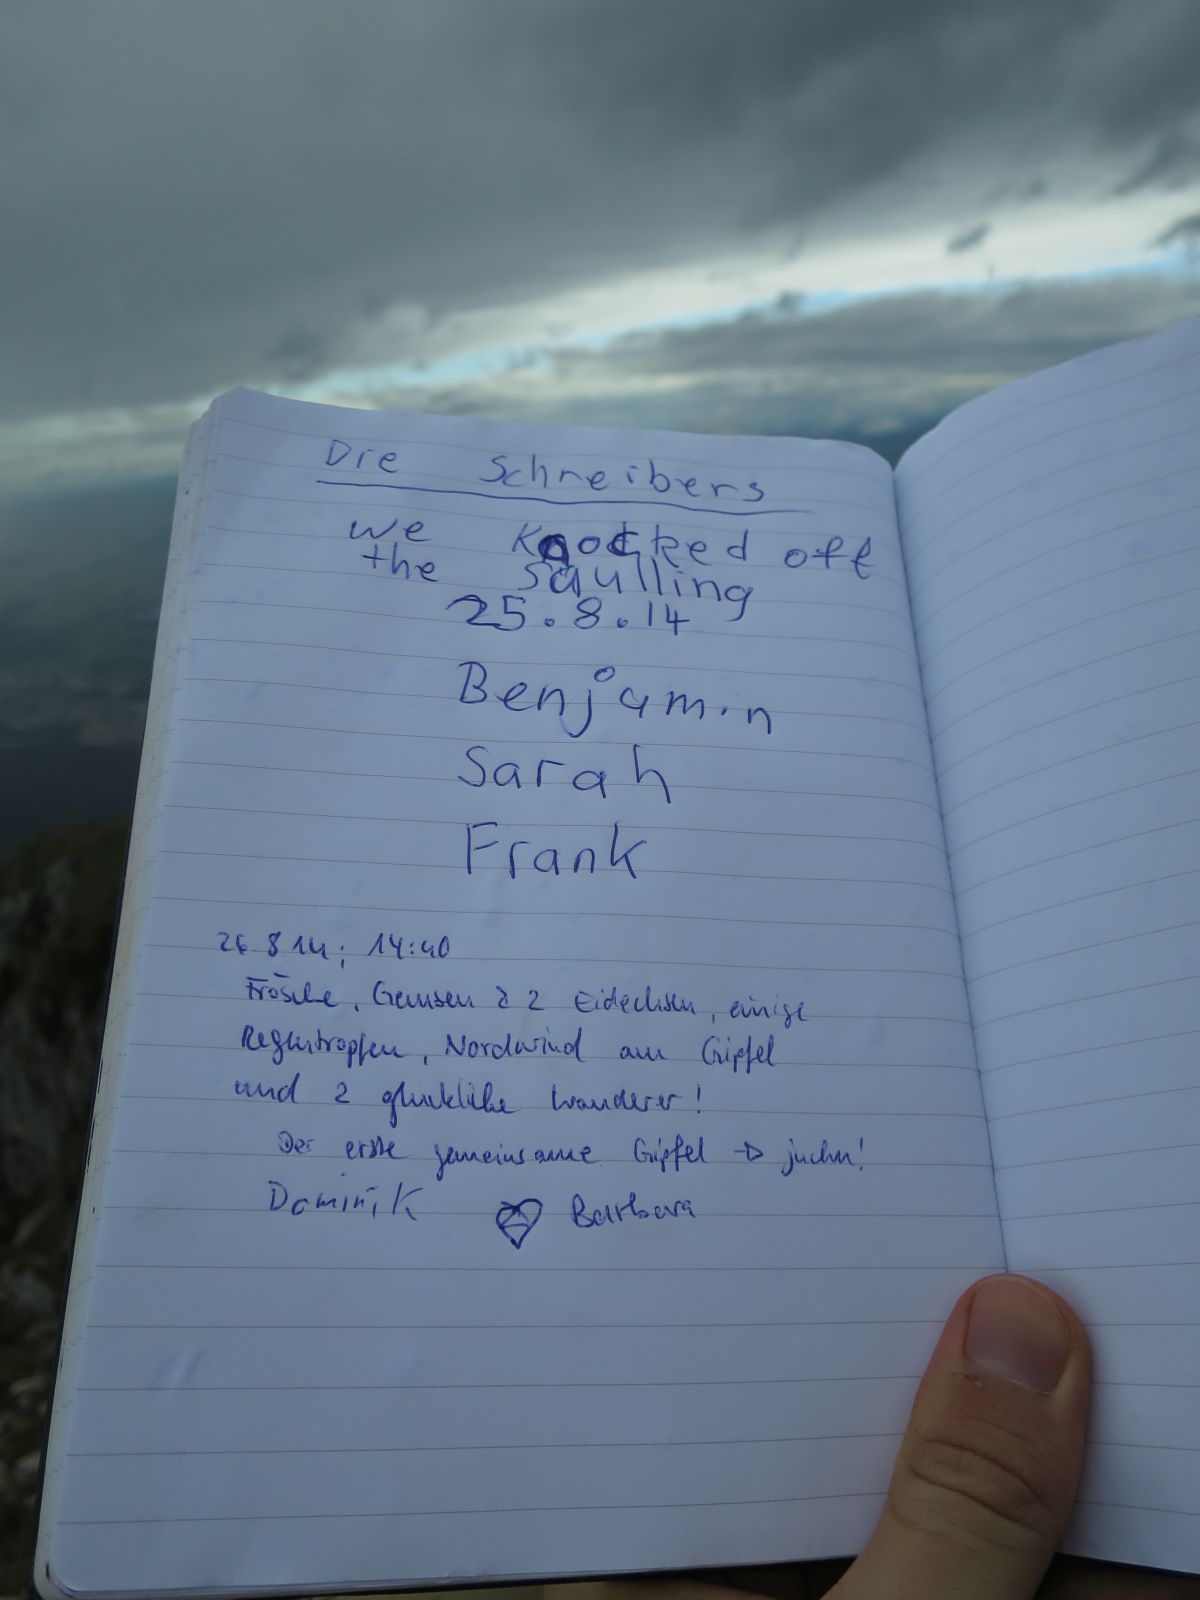 Die Schreibers
We Knocked off
the Säulling
25.8.14
Benjamin
Sarah
Frank
26 8 14; 14:40
Frösche, Gemsen & 2 Eidechsen, einige
Regentropfen, Nordwind am Gipfel
und 2 glückliche Wanderer!
Der erste gemeinsame Gipfel → juchu!
Dominik Barbara